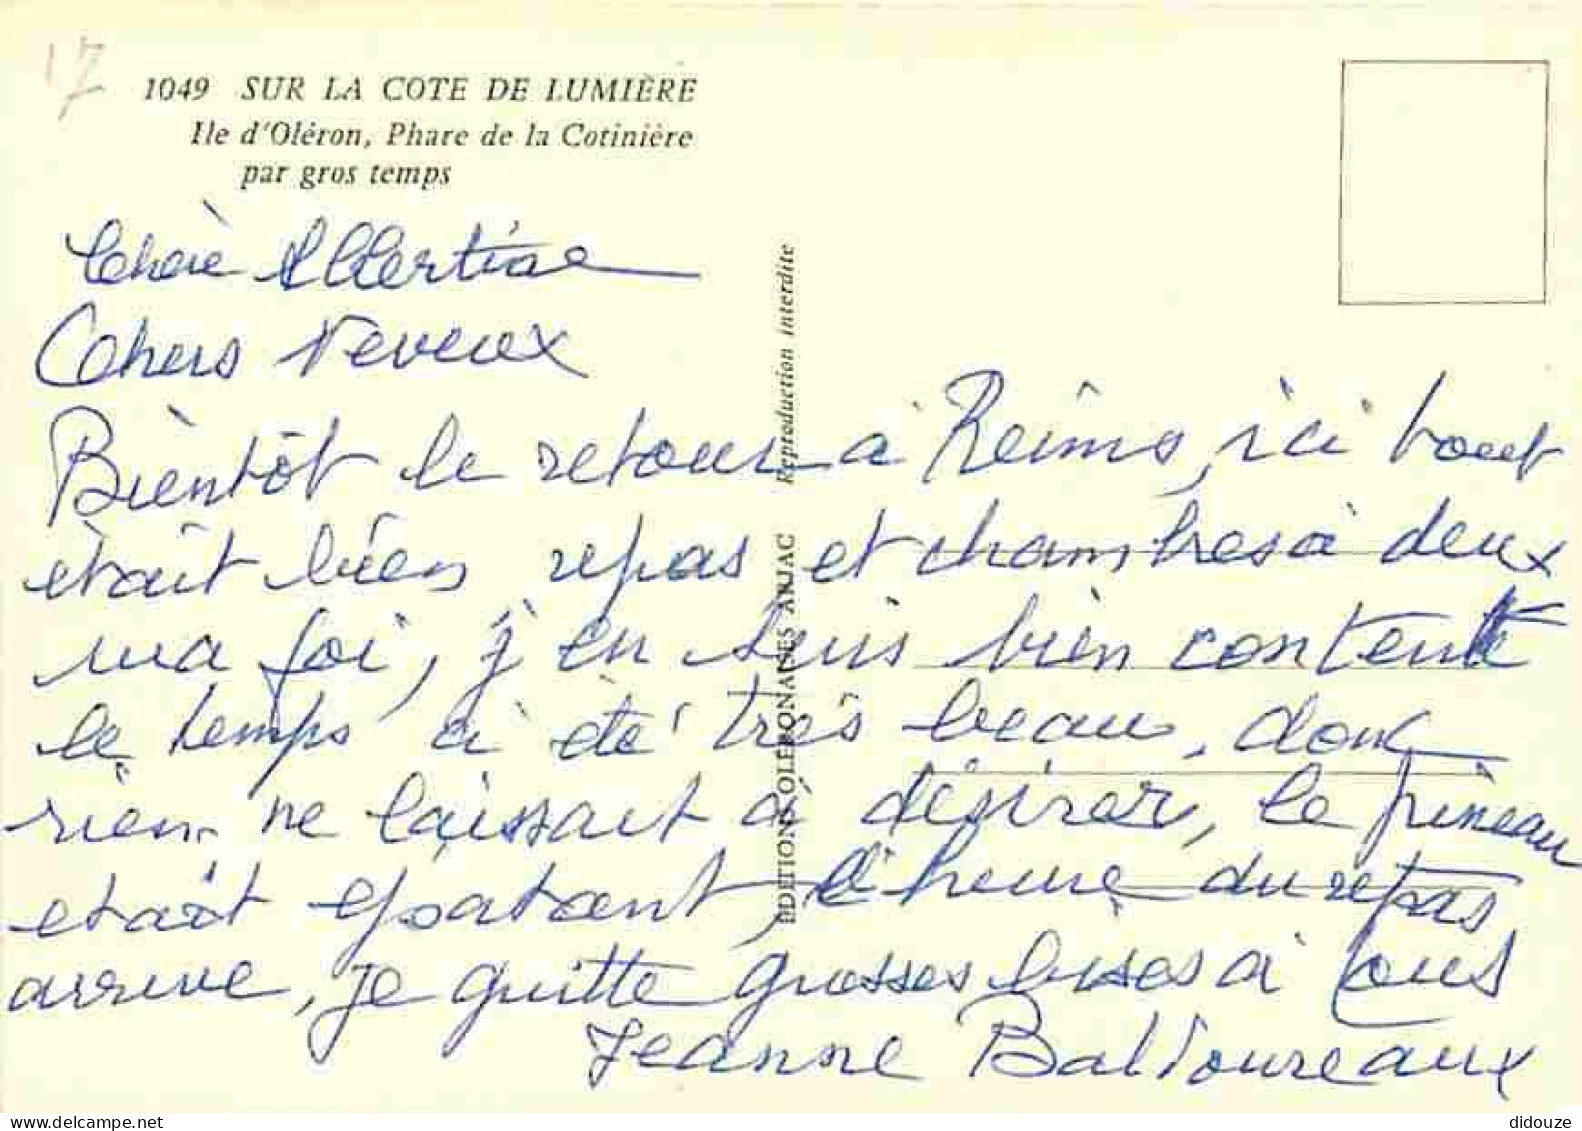 17
1049 SUR LA COTE DE LUMIÈRE
Ile d'Oléron, Phare de la Cotinière
par gros temps
Chère Albertine
Chers Neveux
Bientôt le retour à Reims, ici tout
était bien repas et chambres à deux
ma foi, j'en suis bien contente
le temps à été très beau, donc
rien ne laissait à désirer, le pineau
était épatant, l'heure du repas
arrive, je quitte grosses bises à tous
Jeanne
EDITIONS OLERONAISES ARJAC Reproduction interdite
didouze